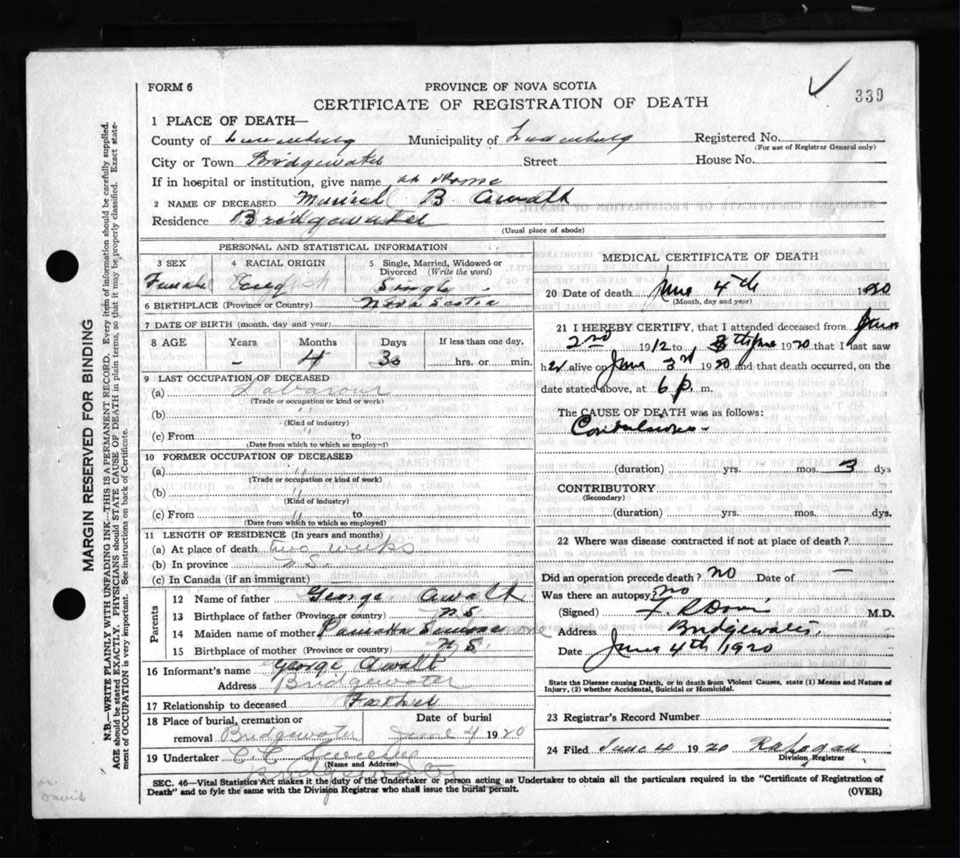 FORM 6
PROVINCE OF NOVA SCOTIA
339
CERTIFICATE OF REGISTRATION OF DEATH
1 PLACE OF DEATH—
County of Lunenburg Municipality of Lunenburg Registered No.
(For use of Registrar General only)
City or Town Bridgewater Street House No.
If in hospital or institution, give name at Home
2 NAME OF DECEASED Muriel B. Awalt
Residence Bridgewater
(Usual place of abode)
PERSONAL AND STATISTICAL INFORMATION
3 SEX 4 RACIAL ORIGIN 5 Single, Married, Widowed or Divorced (Write the word)
Female English Single
6 BIRTHPLACE (Province or Country) Nova Scotia
7 DATE OF BIRTH (month, day and year)
8 AGE Years Months Days If less than one day,
- 4 30 hrs. or min.
9 LAST OCCUPATION OF DECEASED
(a)
(Trade or occupation or kind or work)
(b) "
(Kind of industry)
(c) From to
(Date from which to which so employed)
10 FORMER OCCUPATION OF DECEASED
(a) "
(Trade or occupation or kind of work)
(b) "
(Kind of industry)
(c) From " to
(Date from which to which so employed)
11 LENGTH OF RESIDENCE (In years and months)
(a) At place of death two weeks
(b) In province N.S.
(c) In Canada (if an immigrant) —
Parents
12 Name of father George Awalt
13 Birthplace of father (Province or country) N.S.
14 Maiden name of mother
15 Birthplace of mother (Province or country) N.S.
16 Informant's name George Awalt
Address Bridgewater
17 Relationship to deceased Father
18 Place of burial, cremation or removal Bridgewater Date of burial June 4 1920
19 Undertaker C. C.
(Name and Address)
MEDICAL CERTIFICATE OF DEATH
20 Date of death June 4th 1920
(Month, day and year)
21 I HEREBY CERTIFY, that I attended deceased from June
2nd 1912 to June 1920 that I last saw
her alive on June 3rd 1920 and that death occurred, on the
date stated above, at 6 p. m.
The CAUSE OF DEATH was as follows:
Convulsions -
(duration) yrs. mos. 3 dys
CONTRIBUTORY
(Secondary)
(duration) yrs. mos. dys.
22 Where was disease contracted if not at place of death?
Did an operation precede death? no Date of —
Was there an autopsy? no
(Signed) M.D.
Address Bridgewater,
Date June 4th 1920
State the Disease causing Death, or in death from Violent Causes, state (1) Means and Nature of
Injury, (2) whether Accidental, Suicidal or Homicidal.
23 Registrar's Record Number
24 Filed June 4 1920
Division Registrar
SEC. 46—Vital Statistics Act makes it the duty of the Undertaker or person acting as Undertaker to obtain all the particulars required in the "Certificate of Registration of
Death" and to fyle the same with the Division Registrar who shall issue the burial permit.
(OVER)
MARGIN RESERVED FOR BINDING
N.B.—WRITE PLAINLY WITH UNFADING INK—THIS IS A PERMANENT RECORD. Every item of information should be carefully supplied.
AGE should be stated EXACTLY. PHYSICIANS should STATE CAUSE OF DEATH in plain terms, so that it may be properly classified. Exact state-
ment of OCCUPATION is very important. See instructions on back of Certificate.
Davis